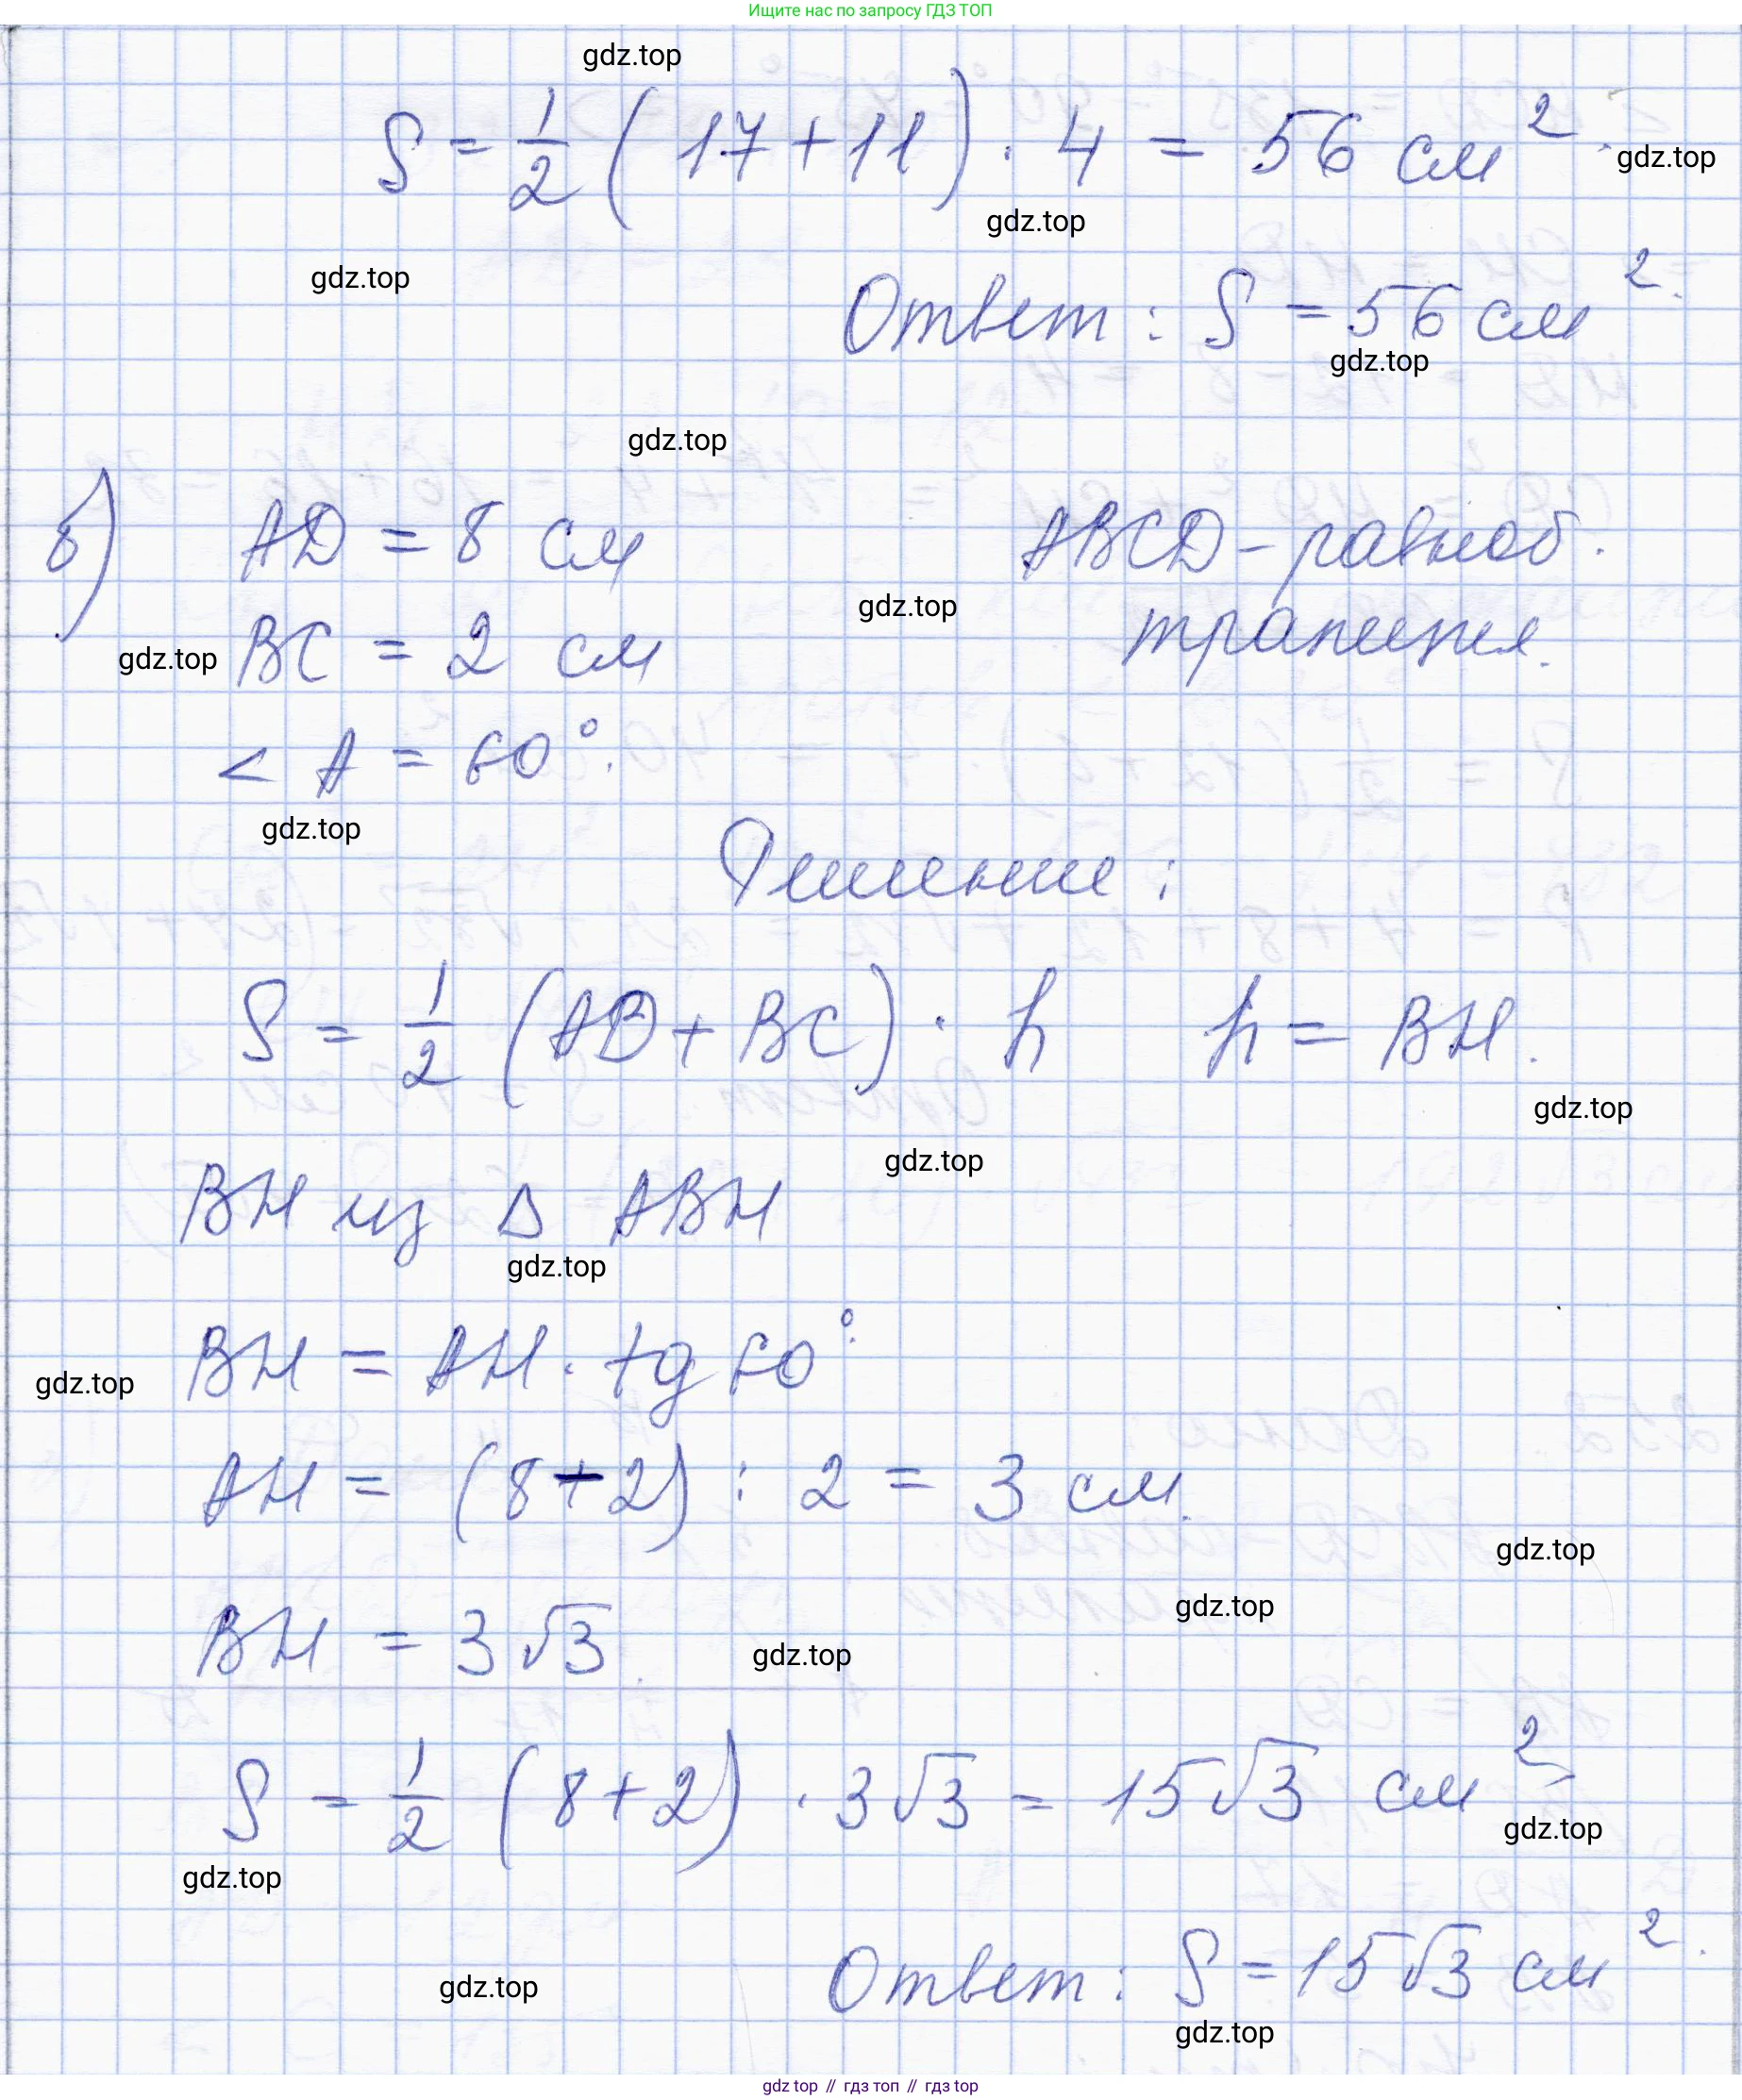 Ищите нас по запросу ГДЗ ТОП
gdz.top
S = 1/2 (17 + 11) · 4 = 56 см².
gdz.top
gdz.top
gdz.top
Ответ: S = 56 см².
gdz.top
gdz.top
б) AD = 8 см ABCD - равноб.
gdz.top
BC = 2 см трапеция.
gdz.top
< A = 60°.
gdz.top
Решение:
S = 1/2 (AD + BC) · h h = BH.
gdz.top
gdz.top
BH из Δ ABH
gdz.top
BH = AH · tg 60°.
gdz.top
AH = (8 - 2) : 2 = 3 см.
gdz.top
gdz.top
BH = 3√3.
gdz.top
S = 1/2 (8 + 2) · 3√3 = 15√3 см²
gdz.top
gdz.top
Ответ: S = 15√3 см².
gdz.top
gdz.top
gdz top // гдз топ // гдз top